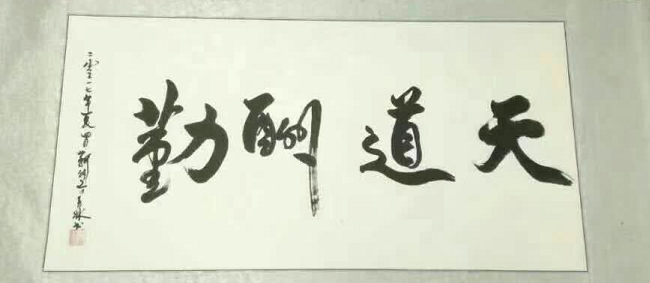 天道酬勤
二零一七年夏月